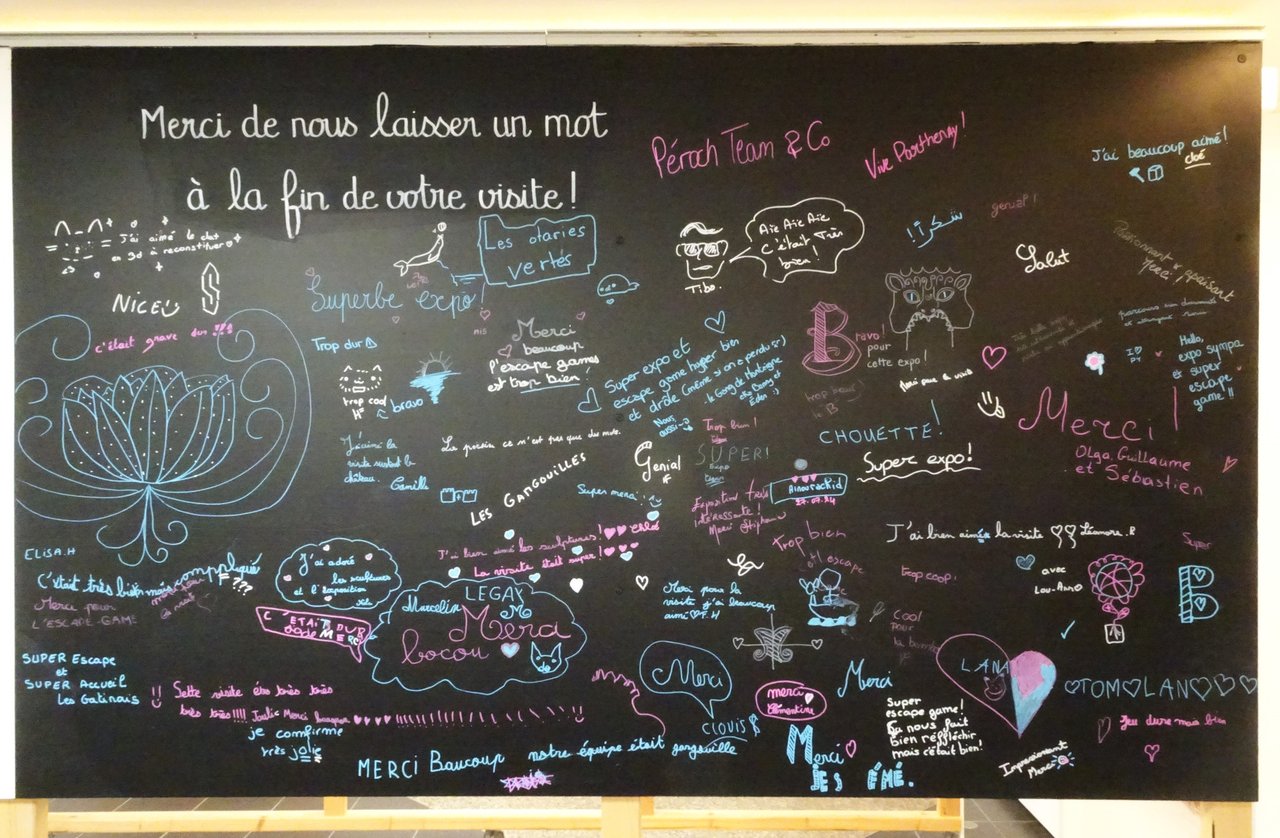 Merci de nous laisser un mot
à la fin de votre visite!
Péroch Team & Co
Vive Parthenay!
J'ai beaucoup aimé!
cloé
J'ai aimé le chat
en 3d à reconstituer
NICE
S
Les otaries
vertes
Superbe expo!
Aïe Aïe Aïe
C'était Très
bien!
Tibo.
شكراً!
genial!
Salut
Passionnant & apaisant
Merci
c'était grave dur
Trop dur
trop cool
bravo
Merci
beaucoup
l'escape games
est trop bien
Super expo et
escape game hyper bien
et drôle (même si on a perdu :-)
Nous,
aussi
Bravo!
pour
cette expo!
trop beau!
le B
Hello,
expo sympa
et super
escape
game!!
I ♡
PY
Merci!
Olga, Guillaume
et Sébastien
J'ai aimé la
visite surtout le
château.
Camille
La poésie ce n'est pas que des mots.
LES GANGOUILLES
Genial
Super merci!
Trop bien!
SUPER!
Expo
CHOUETTE!
Super expo!
Ainourachid
27.07.24
Exposition très
intéressante!
Merci Stéphane
Trop bien
J'ai bien aimé les sculptures! ♡♡ Chloé
La visite était super!
J'ai bien aimée la visite ♡♡ Léanore.B
avec
Lou-Ann
Super
B
trop coop!
Cool
pour
ELISA.H
C'était très bien mais compliqué
= ???
Merci pour
L'ESCAPE-GAME
J'ai adoré
les sculptures
et l'exposition
C'ÉTAIT DUR
LEGAX
Marcelin
M
Merci
bocou
Merci pour la
visite j'ai beaucoup
aimé ♡ F.H
SUPER Escape
et
SUPER Accueil
les Gatinais
Sette visite éts très très
très très!!!!
je confirme
très jolie
MERCI Baucoup
notre équipe était gargouille
Merci
CLOVIS
merci
Clémentine
Merci
Merci
JES ÉMÉ.
Super
escape game!
Ça nous fait
bien réfléchir
mais c'était bien!
LANA
♡TOM♡LAN♡
Jeu dure mais bien
Impressionnant
Merci